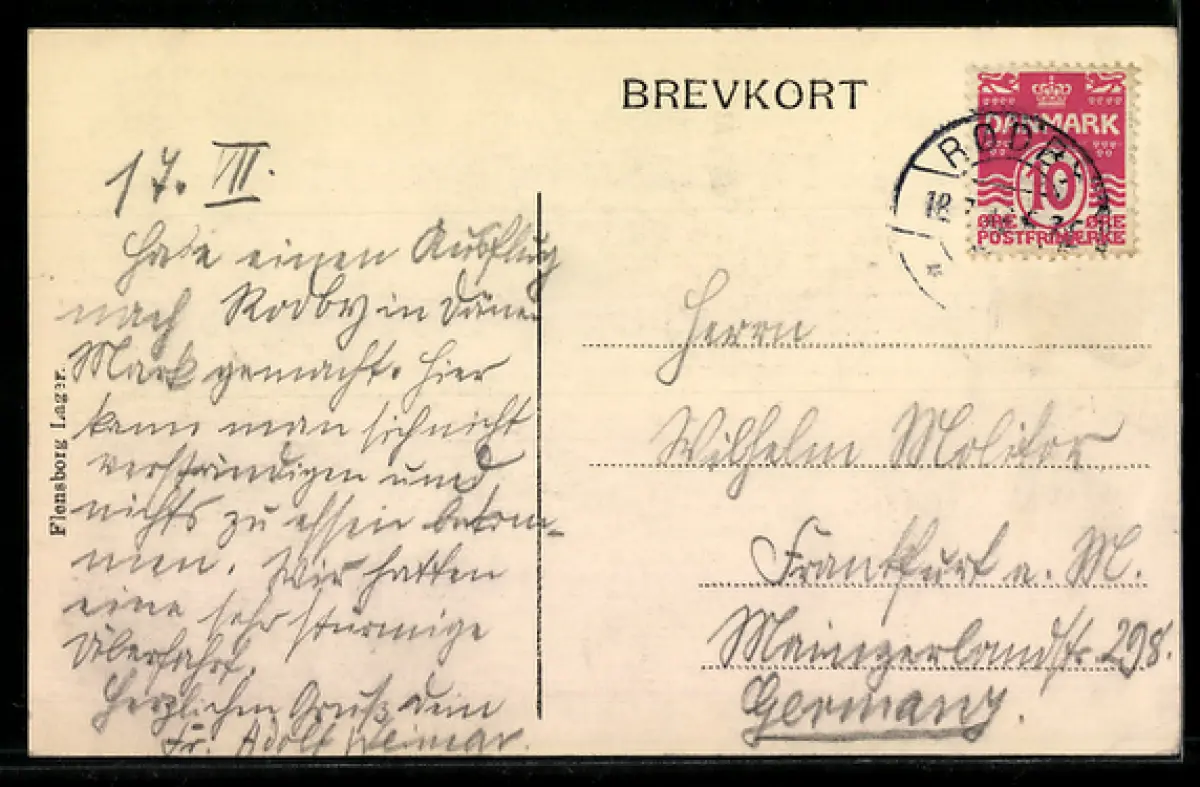 BREVKORT
DANMARK
10
ØRE ØRE
POSTFRIMÆRKE
RØDBY
18
17. VIII.
Habe einen Ausflug
nach Rodby in Däne
Mark gemacht. Hier
kann man sich nicht
verständigen und
nichts zu essen bekom-
men. Wir hatten
eine sehr stürmige
Überfahrt.
Herzlichen Gruß dein
Fr. Adolf Weimar.
Herrn
Wilhelm Molitor
Frankfurt a. M.
Mainzerlandstr. 298.
Germany.
Flensborg Lager.